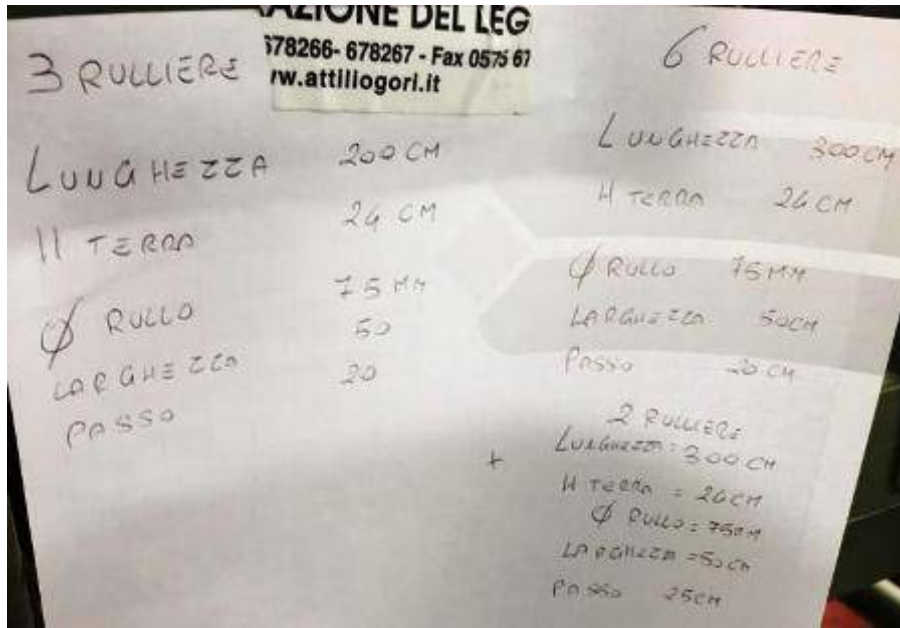 AZIONE DEL LEG
578266- 678267 - Fax 0575 67
w.attiliogori.it
3 RULLIERE
LUNGHEZZA 200 CM
H TERRA 24 CM
Ø RULLO 75 MM
LARGHEZZA 50
PASSO 20
6 RULLIERE
LUNGHEZZA 300 CM
H TERRA 24 CM
Ø RULLO 75 MM
LARGHEZZA 50 CM
PASSO 20 CM
+ 2 RULLIERE
LUNGHEZZA = 300 CM
H TERRA = 24 CM
Ø RULLO = 75
LARGHEZZA = 50 CM
PASSO 25 CM